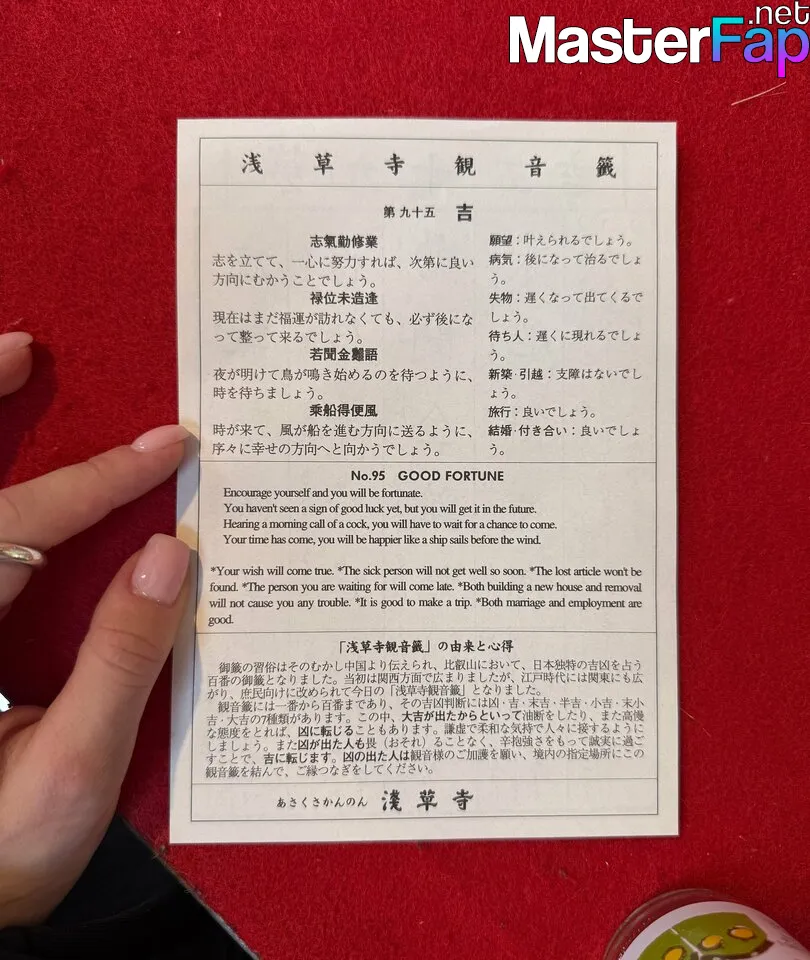 MasterFap.net
浅草寺観音籤
第九十五 吉
志氣勤修業
志を立てて、一心に努力すれば、次第に良い
方向にむかうことでしょう。
禄位未造逢
現在はまだ福運が訪れなくても、必ず後にな
って整って来るでしょう。
若聞金雞語
夜が明けて鳥が鳴き始めるのを待つように、
時を待ちましょう。
乗船得便風
時が来て、風が船を進む方向に送るように、
序々に幸せの方向へと向かうでしょう。
願望：叶えられるでしょう。
病気：後になって治るでしょ
う。
失物：遅くなって出てくるで
しょう。
待ち人：遅くに現れるでしょ
う。
新築・引越：支障はないでし
ょう。
旅行：良いでしょう。
結婚・付き合い：良いでしょ
う。
No.95 GOOD FORTUNE
Encourage yourself and you will be fortunate.
You haven't seen a sign of good luck yet, but you will get it in the future.
Hearing a morning call of a cock, you will have to wait for a chance to come.
Your time has come, you will be happier like a ship sails before the wind.
*Your wish will come true. *The sick person will not get well so soon. *The lost article won't be
found. *The person you are waiting for will come late. *Both building a new house and removal
will not cause you any trouble. *It is good to make a trip. *Both marriage and employment are
good.
「浅草寺観音籤」の由来と心得
御籤の習俗はそのむかし中国より伝えられ、比叡山において、日本独特の吉凶を占う
百番の御籤となりました。当初は関西方面で広まりましたが、江戸時代には関東にも広
がり、庶民向けに改められて今日の「浅草寺観音籤」となりました。
観音籤には一番から百番まであり、その吉凶判断には凶・吉・末吉・半吉・小吉・末小
吉・大吉の7種類があります。この中、大吉が出たからといって油断をしたり、また高慢
な態度をとれば、凶に転じることもあります。謙虚で柔和な気持で人々に接するように
しましょう。また凶が出た人も畏（おそれ）ることなく、辛抱強さをもって誠実に過ご
すことで、吉に転じます。凶の出た人は観音様のご加護を願い、境内の指定場所にこの
観音籤を結んで、ご縁つなぎをしてください。
あさくさかんのん 淺草寺